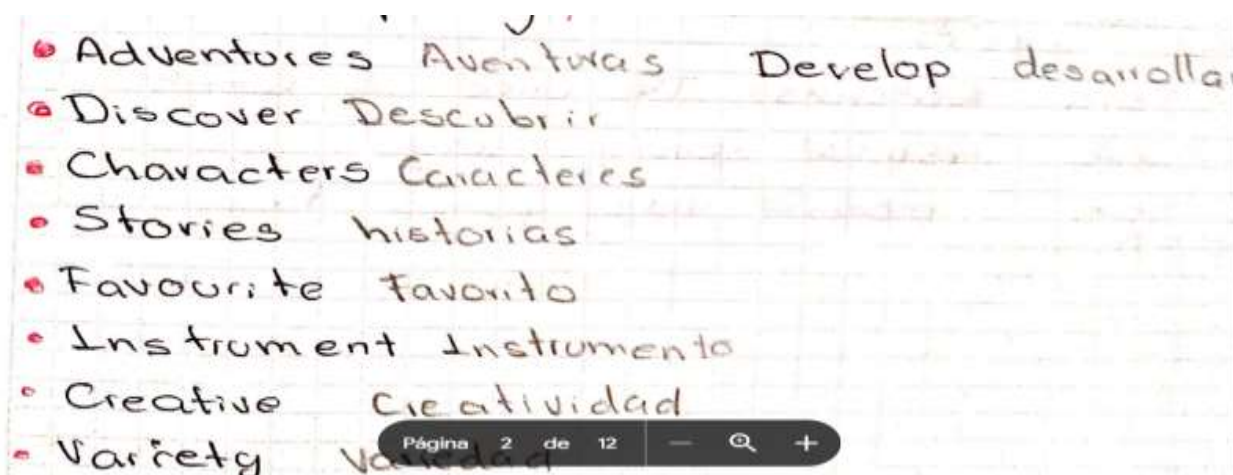 Adventures Aventuras Develop desarrolla
Discover Descubrir
Characters Caracteres
Stories historias
Favourite Favorito
Instrument Instrumento
Creative Creatividad
Variety Variedad
Página 2 de 12